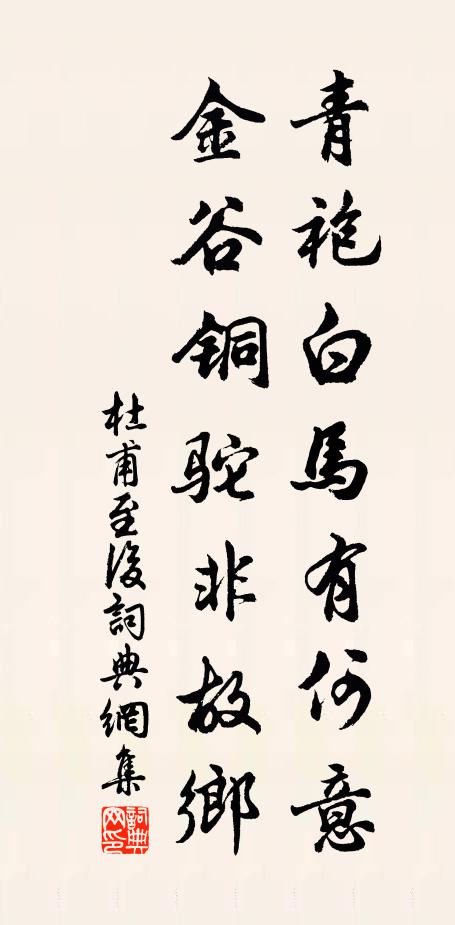 青袍白馬有何意
金谷铜驼非故鄉
杜甫至後詞典網集
詞典網印